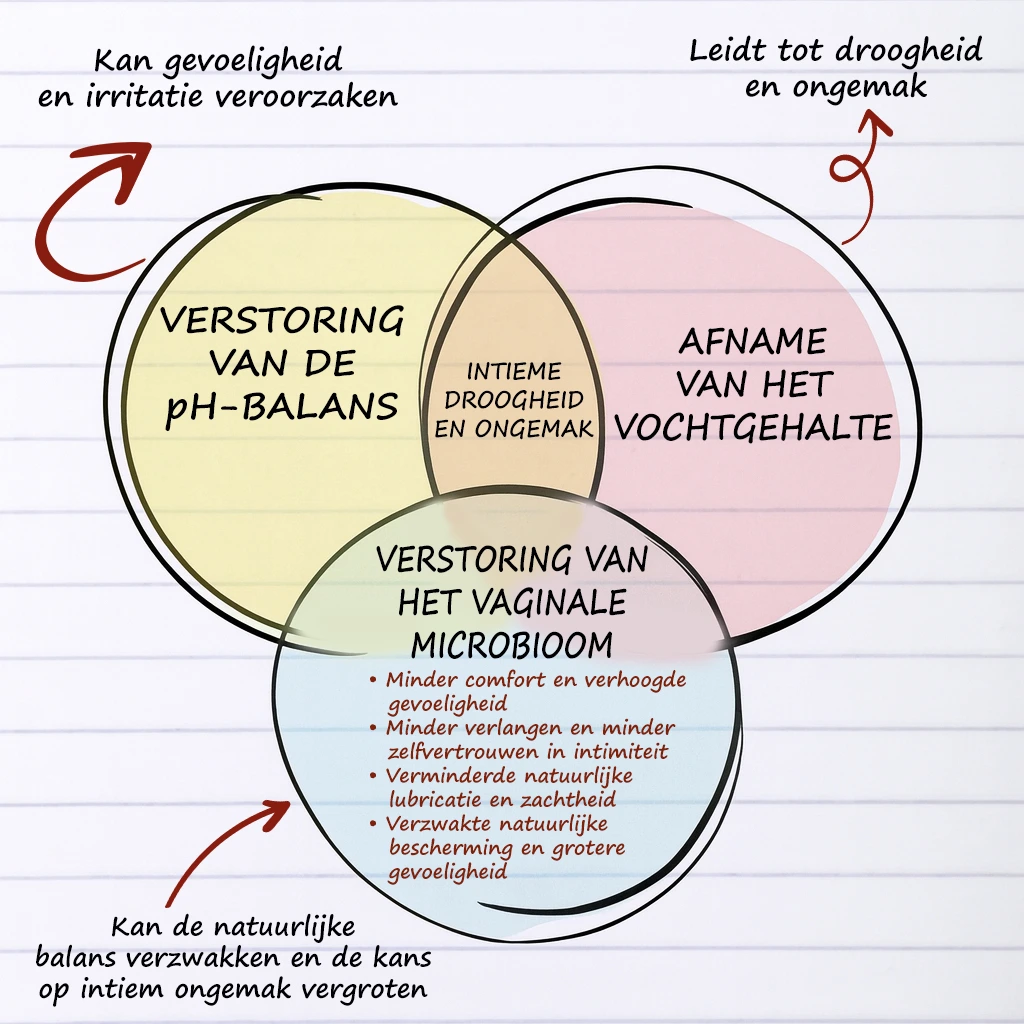 Kan gevoeligheid
en irritatie veroorzaken
Leidt tot droogheid
en ongemak
VERSTORING
VAN DE
pH-BALANS
INTIEME
DROOGHEID
EN ONGEMAK
AFNAME
VAN HET
VOCHTGEHALTE
VERSTORING VAN
HET VAGINALE
MICROBIOOM
• Minder comfort en verhoogde
gevoeligheid
• Minder verlangen en minder
zelfvertrouwen in intimiteit
• Verminderde natuurlijke
lubricatie en zachtheid
• Verzwakte natuurlijke
bescherming en grotere
gevoeligheid
Kan de natuurlijke
balans verzwakken en de kans
op intiem ongemak vergroten